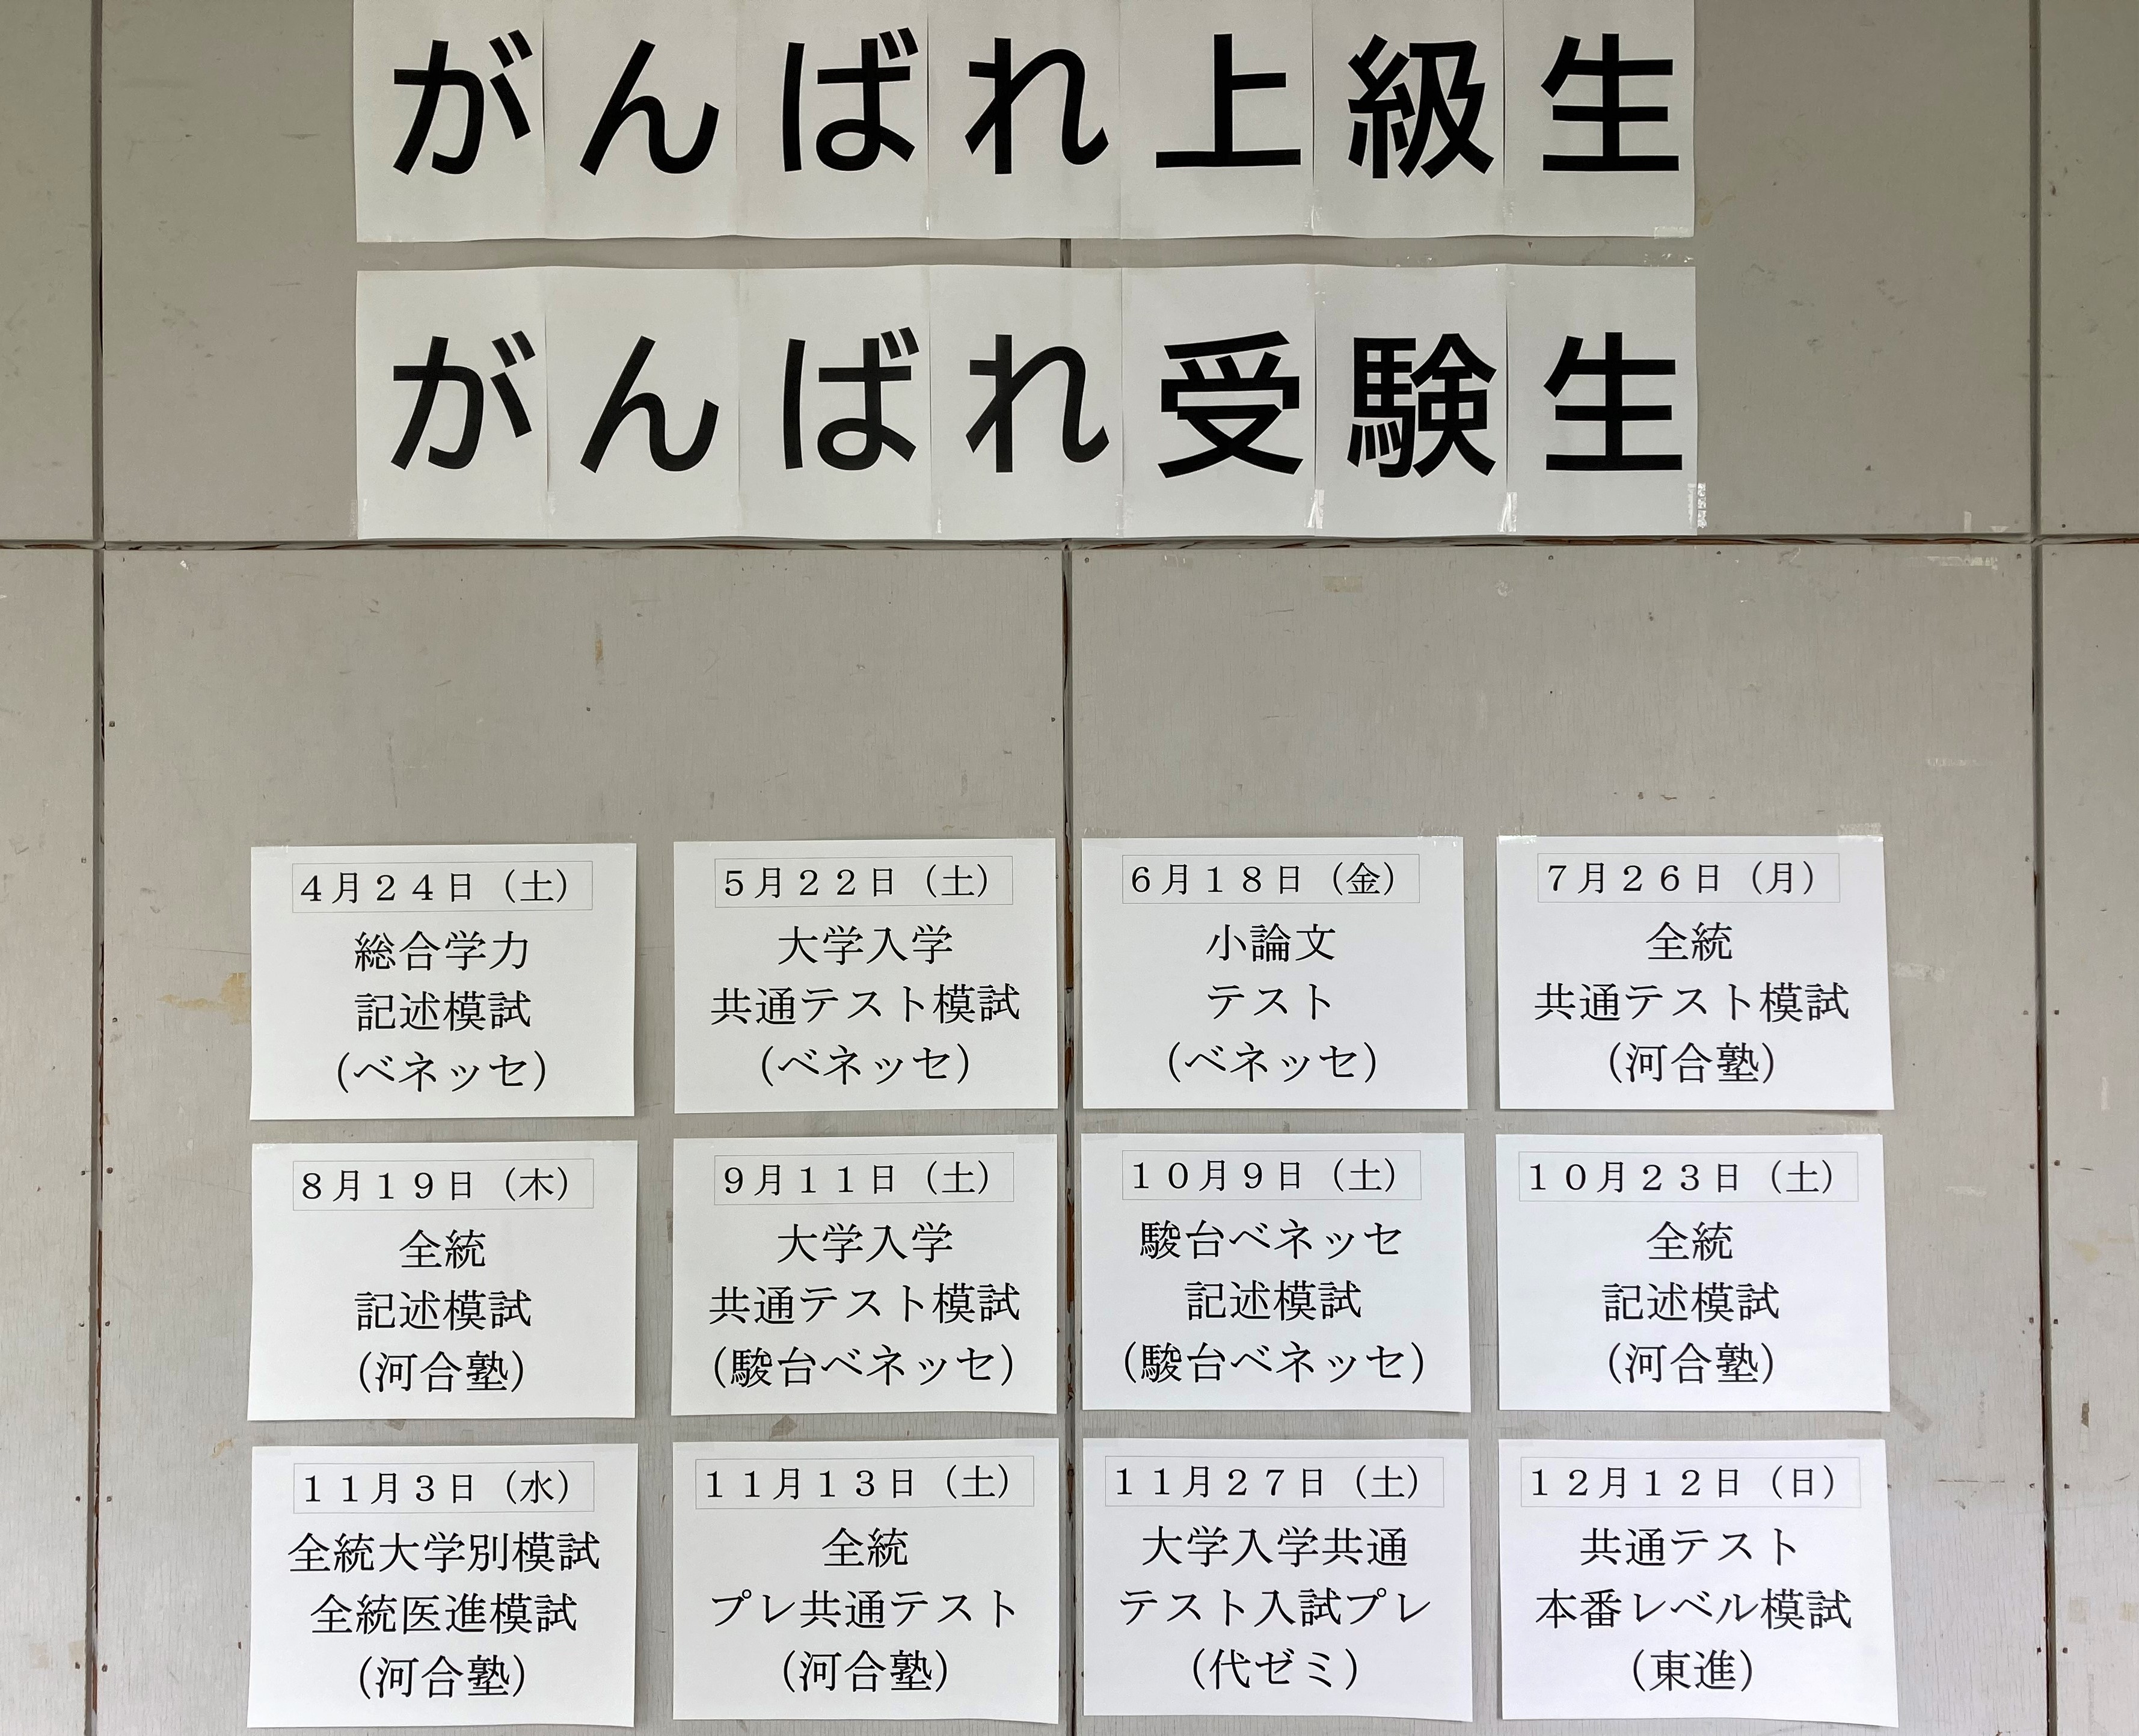 がんばれ上級生
がんばれ受験生
４月２４日（土）
総合学力
記述模試
(ベネッセ)
５月２２日（土）
大学入学
共通テスト模試
(ベネッセ)
６月１８日（金）
小論文
テスト
(ベネッセ)
７月２６日（月）
全統
共通テスト模試
(河合塾)
８月１９日（木）
全統
記述模試
(河合塾)
９月１１日（土）
大学入学
共通テスト模試
(駿台ベネッセ)
１０月９日（土）
駿台ベネッセ
記述模試
(駿台ベネッセ)
１０月２３日（土）
全統
記述模試
(河合塾)
１１月３日（水）
全統大学別模試
全統医進模試
(河合塾)
１１月１３日（土）
全統
プレ共通テスト
(河合塾)
１１月２７日（土）
大学入学共通
テスト入試プレ
(代ゼミ)
１２月１２日（日）
共通テスト
本番レベル模試
(東進)